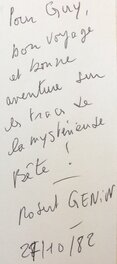 Pour Guy,
bon voyage
et bonne
aventure sur
les traces de
la mystérieuse
bête !
Robert GENIN
27/10/82